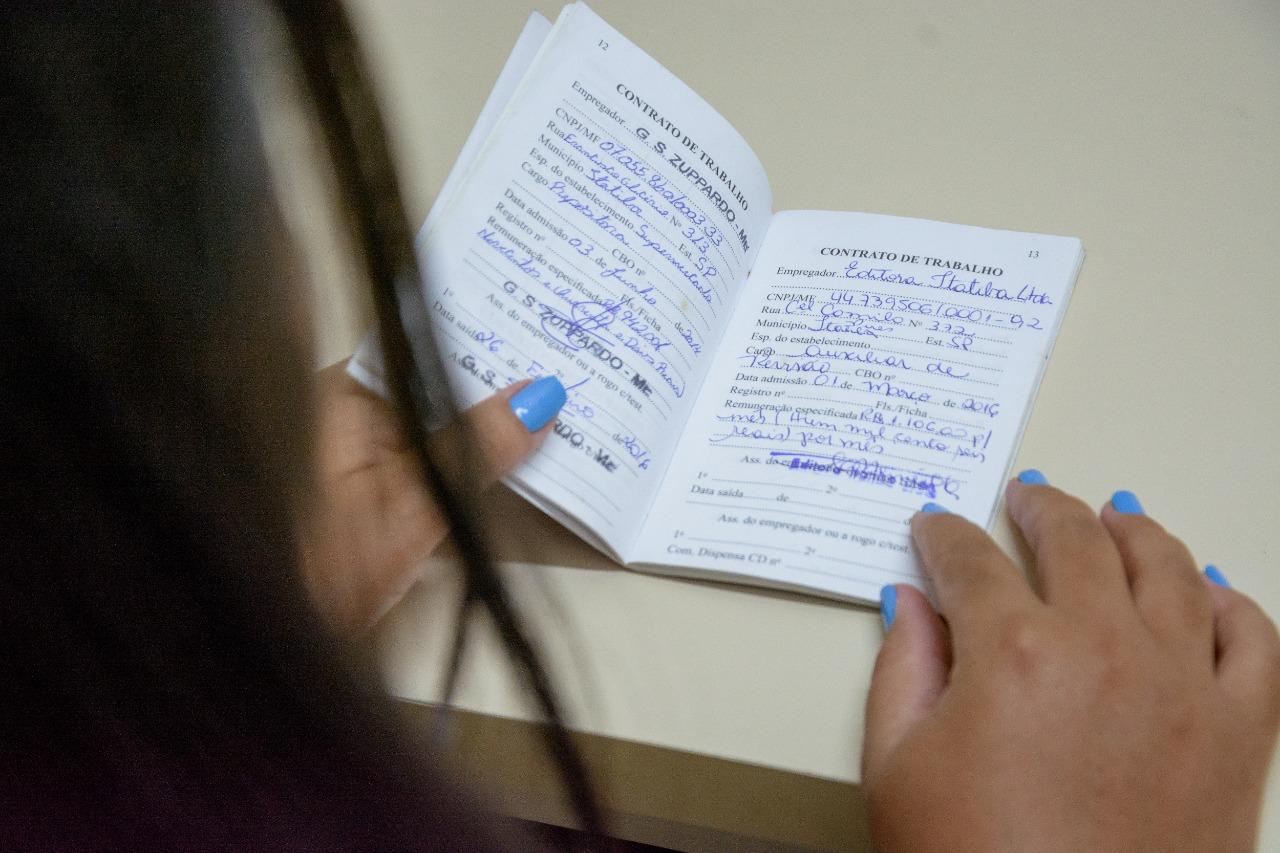 12
CONTRATO DE TRABALHO
Empregador G. S. ZUPPARDO - Me
CNPJ/MF
Rua Nº 313
Município Itatiba Est. SP
Esp. do estabelecimento Supermercado
Cargo CBO nº
Data admissão 03 de Junho de 2014
Registro nº Fls./Ficha
Remuneração especificada
G. S. ZUPPARDO - Me
Ass. do empregador ou a rogo c/test.
1º
Data saída 26 de de 2016
G. S.
13
CONTRATO DE TRABALHO
Empregador Editora Itatiba Ltda
CNPJ/MF 44.739506/0001-92
Rua Cel Camilo Nº 372
Município Est. SP
Esp. do estabelecimento
Cargo Auxiliar de
Revisão CBO nº
Data admissão 01 de Março de 2016
Registro nº Fls./Ficha
Remuneração especificada R$ 1.106,00 p/
mês (Hum mil cento seis
reais) por mês
Ass. do Editora
1º 2º
Data saída de d
Ass. do empregador ou a rogo c/test.
1º 2º
Com. Dispensa CD nº